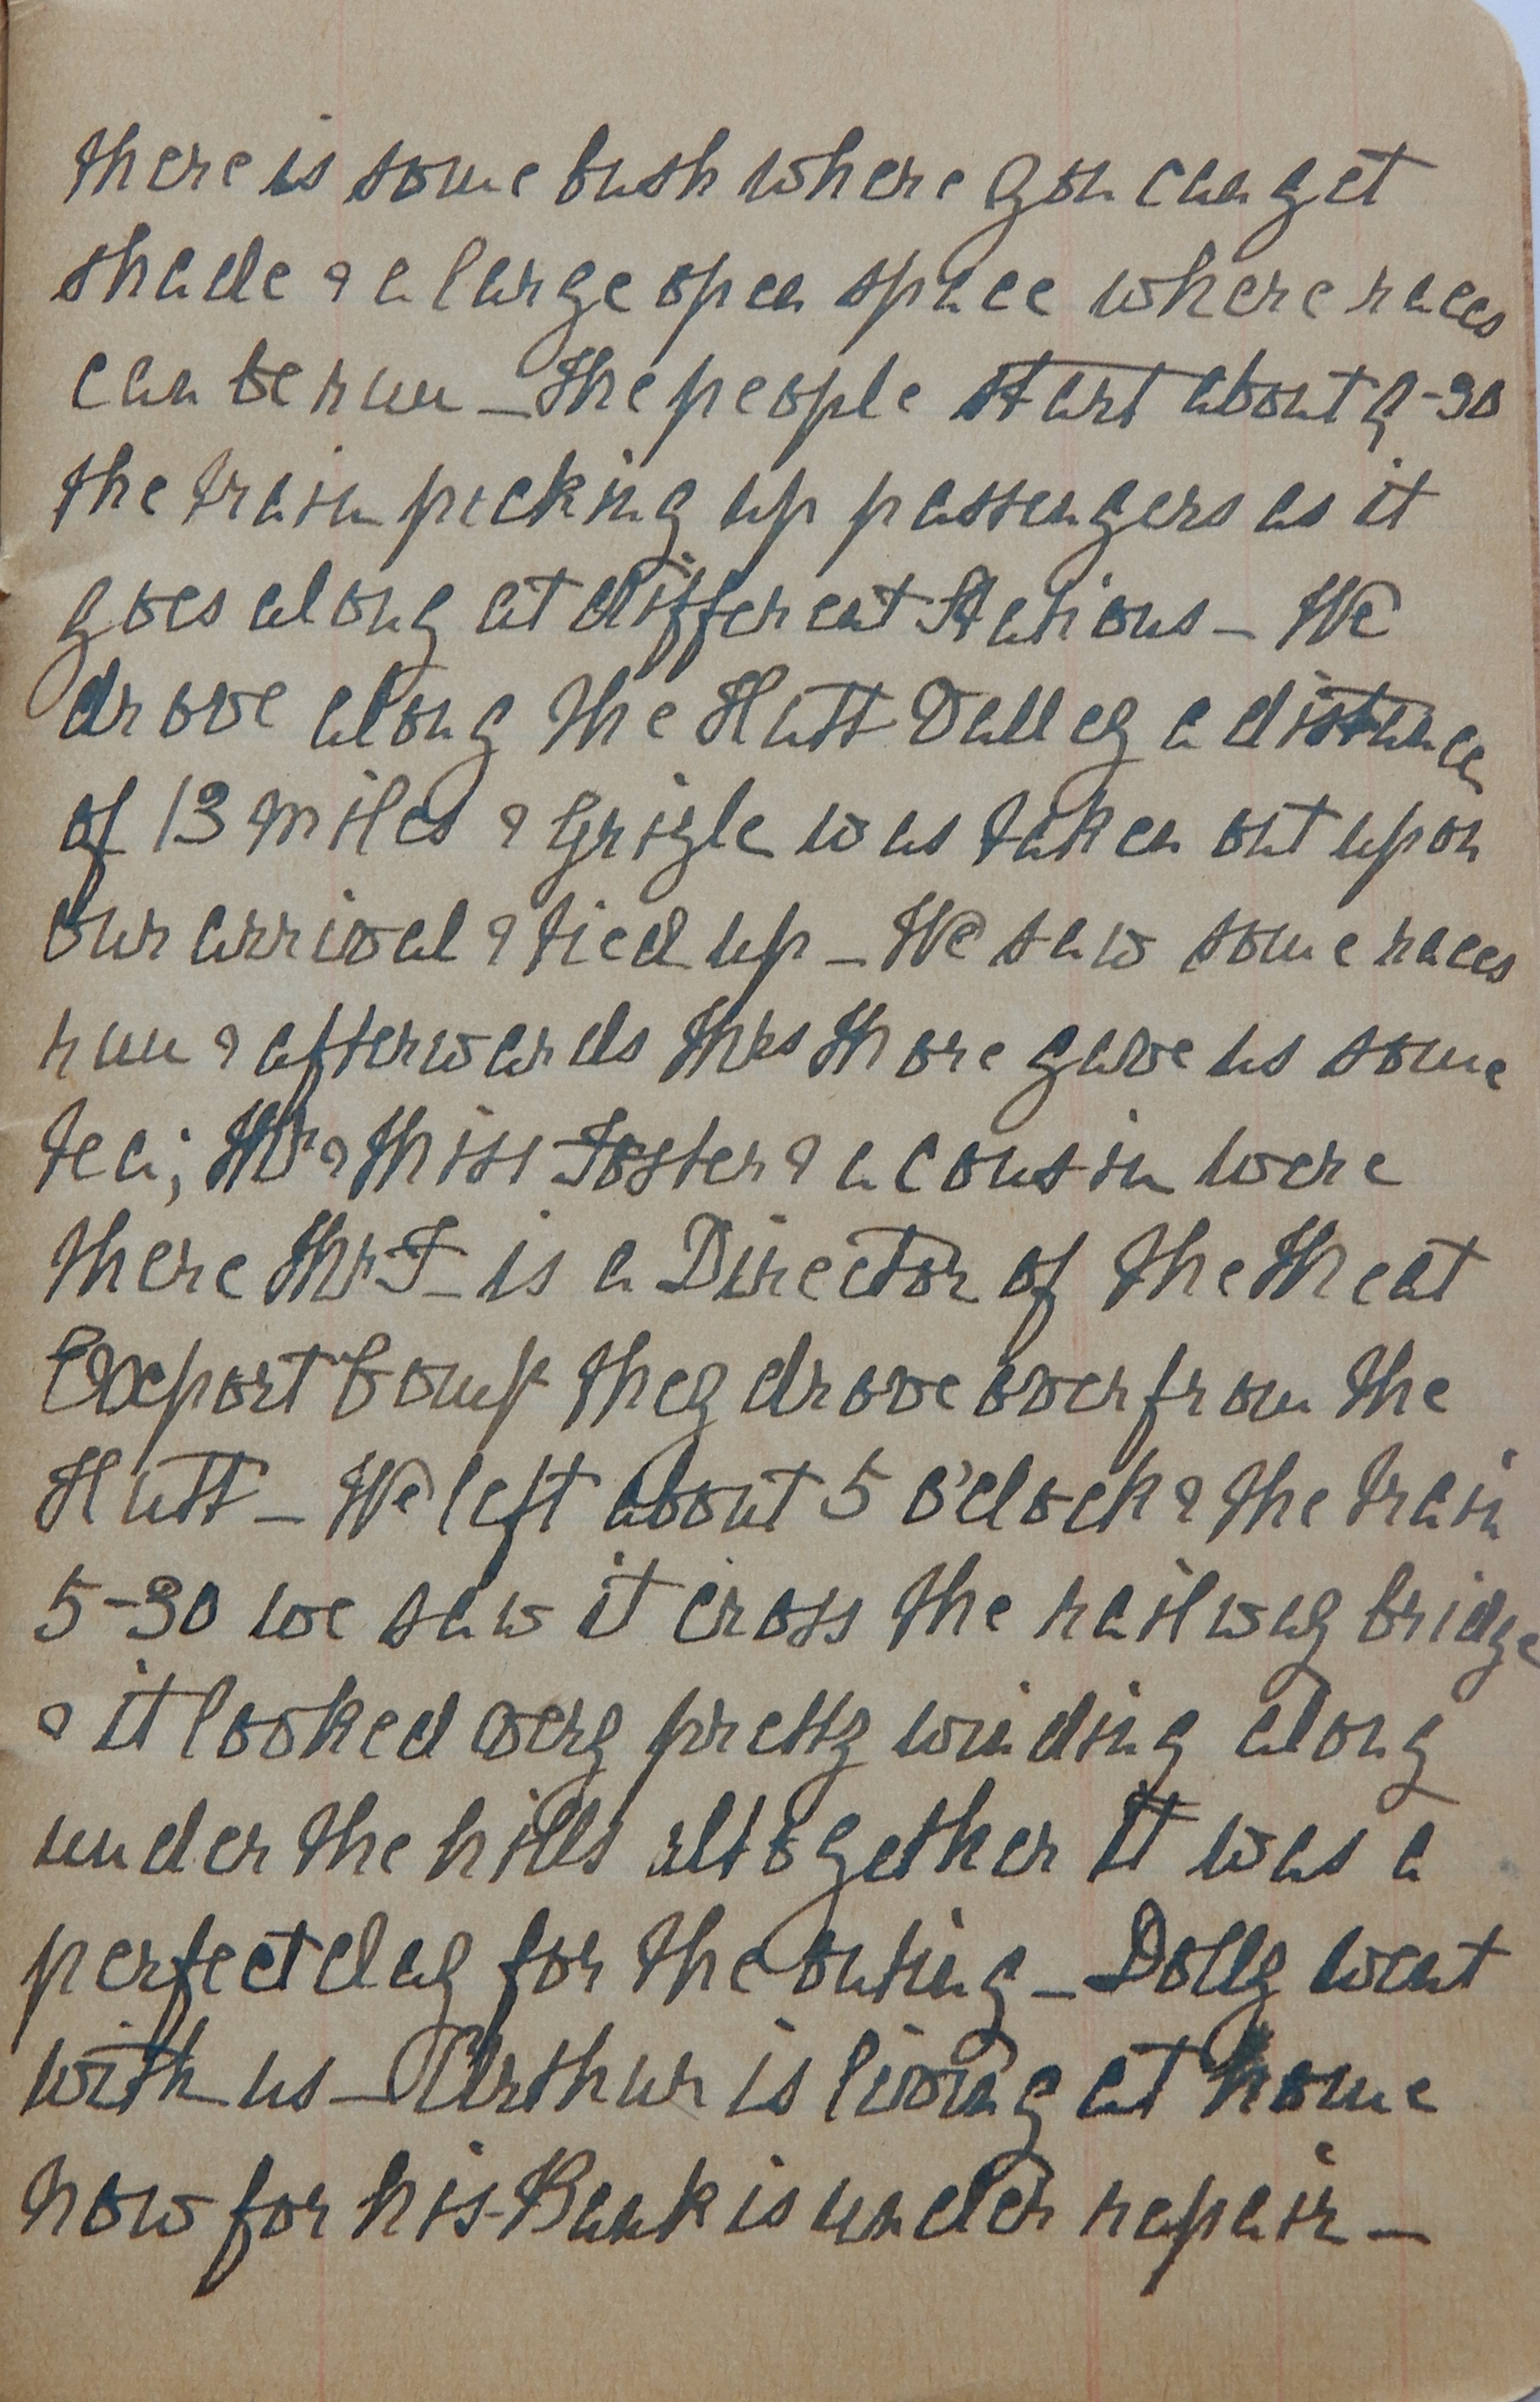 there is some bush where you can get
shade & a large open space where races
can be run _ The people start about 9-30
the train picking up passengers as it
goes along at different Stations _ We
drove along the Hutt Valley a distance
of 13 miles & Grizle was taken out upon
our arrival & tied up _ We saw some races
run & afterwards Mrs More gave us some
tea; Mr & Miss Foster & a cousin were
there Mr F _ is a Director of the Meat
Export Comp they drove over from the
Hutt _ We left about 5 o'clock & the train
5-30 we saw it cross the railway bridge
& it looked very pretty winding along
under the hills altogether it was a
perfect day for the outing _ Dolly went
with us _ Arthur is living at home
now for his Bank is under repair _